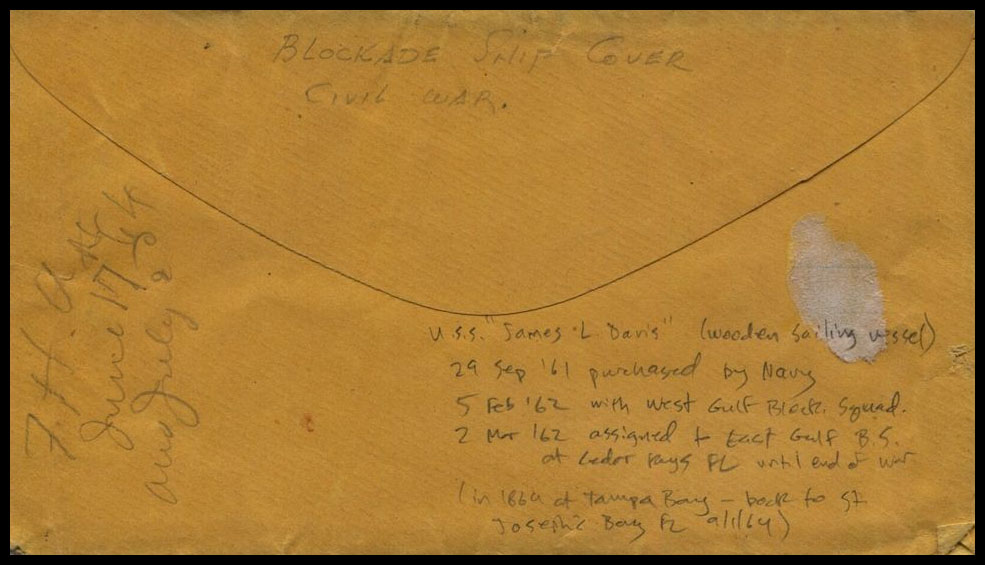 BLOCKADE SHIP COVER
CIVIL WAR.
F. H.
June 17
and July 2
U.S.S. "James L. Davis" (wooden sailing vessel)
29 Sep '61 purchased by Navy
5 Feb '62 with West Gulf Block. Squad.
2 Mar '62 assigned to East Gulf B.S.
at Cedar Keys FL until end of war
(in 1864 at Tampa Bay – back to St
Joseph's Bay FL 9/1/64)